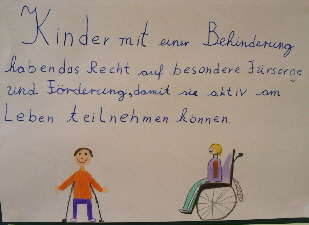 Kinder mit einer Behinderung
haben das Recht auf besondere Fürsorge
und Förderung, damit sie aktiv am
Leben teilnehmen können.